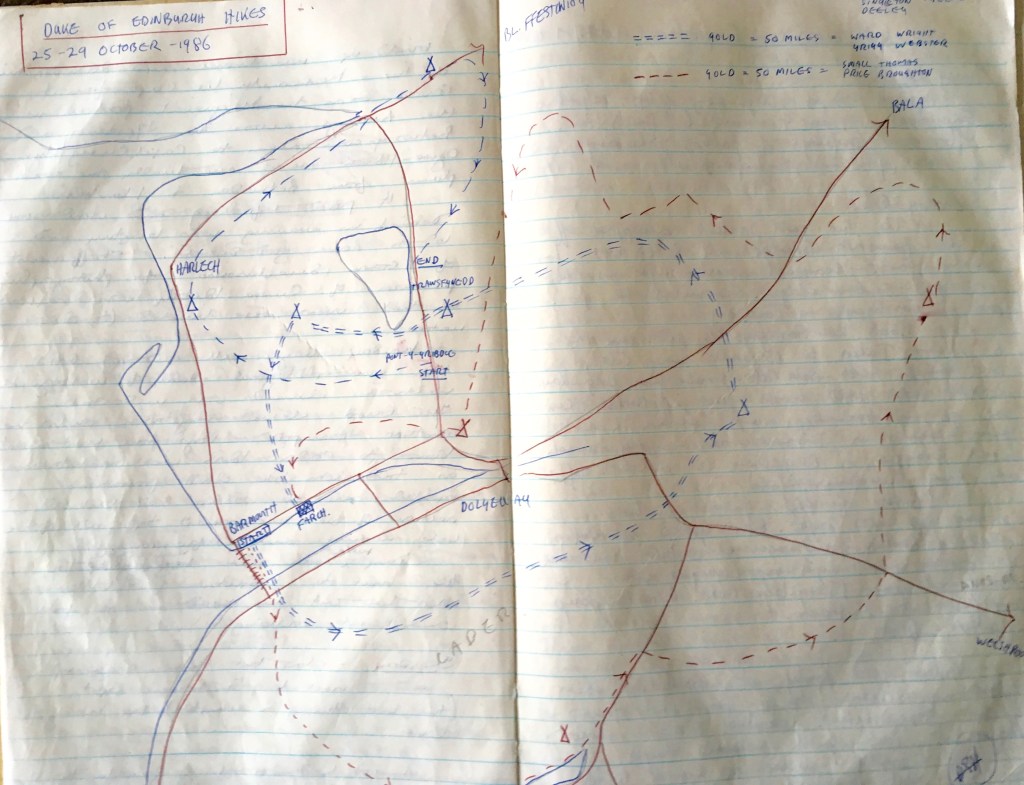 DUKE OF EDINBURGH HIKES
25-29 OCTOBER -1986
BL. FFESTINIOG
DEELEY
GOLD = 50 MILES = WARD WRIGHT
GRIGG WEBSTER
GOLD = 50 MILES = SMALL THOMAS
PRICE BROUGHTON
BALA
HARLECH
END
TRAWSFYNYDD
START
BARMOUTH
START
FARCH.
DOLGELLAU
CADER